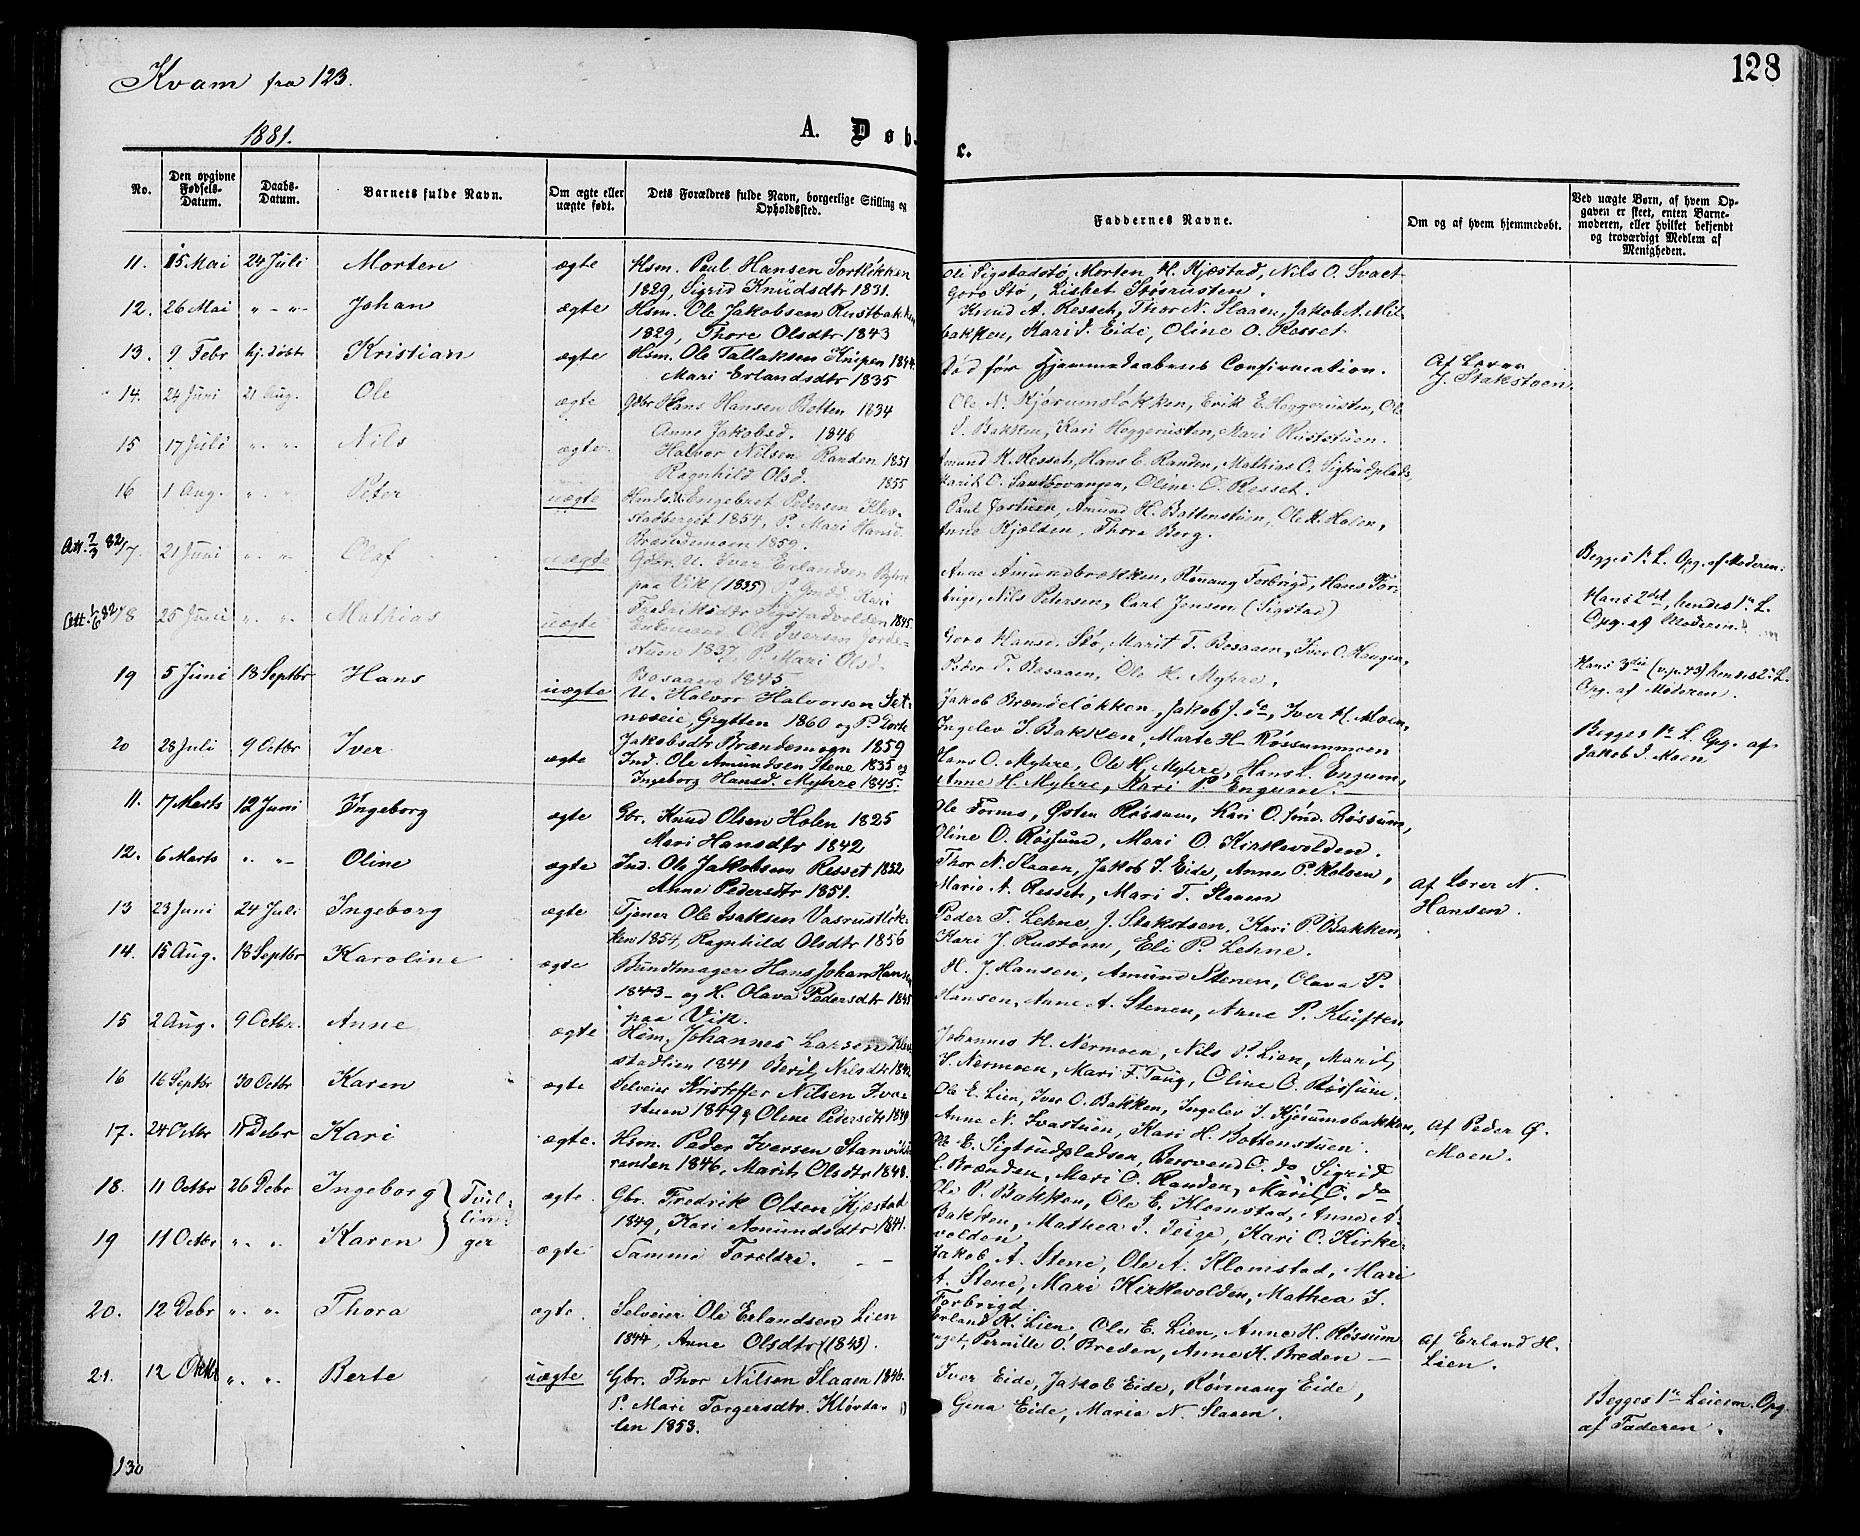 Kvam fra 123.
128
1881.
A. Døb-
c.
No.
Den opgivne Fødsels-Datum.
Daabs-Datum.
Barnets fulde Navn.
Om ægte eller uægte født.
Dets Forældres fulde Navn, borgerlige Stilling og Opholdssted.
Faddernes Navne.
Om og af hvem hjemmedøbt.
Ved uægte Børn, af hvem Opgaven er skeet, enten Barnemoderen, eller hvilket bekjendt og troværdigt Medlem af Menigheden.
11. 15 Mai 24 Juli Morten ægte Hsm. Paul Hansen Sorkløkken
1829, Sigrid Knudsdtr 1831.
Ole Sigstadstø, Morten H. Kjæstad, Nils O. Svaet
Goro Stø, Lisbet Støsrusten.
12. 26 Mai " - " - Johan ægte Hsm. Ole Jakobsen Rustbakken
1829, Thore Olsdtr 1843
Knud A. Resset, Thor N. Slaaen, Jakob A. Mil-
bakken, Kari J. Eide, Oline O. Resset
13. 9 Febr hj. døbt Kristian ægte Hsm. Ole Tallaksen Knipen 1844.
Mari Erlandsdtr 1835
Død før Hjemmedaabens Confirmation.
Af Lærer
J. Stakstoen.
14. 24 Juni 21 Aug. Ole ægte Gbr Hans Hansen Botten 1834
Anne Jakobsd. 1846
Ole N. Kjørumsløkken, Erik E. Heggerusten, Ol
S. Bakken, Kari Heggerusten, Mari Ruststuen.
15 17 Juli " " Nils ægte Halvor Nilsen Randen 1851
Ragnhild Olsd. 1855
Amund K. Resset, Hans E. Randen, Mathias O. Sigtrudplads,
Marit O. Sandbovangen, Oline O. Resset.
16 1 Aug. " " Peter uægte Engebret Pedersen Klev-
stadberget 1854, P. Mari Hansd.
Brændemoen 1859.
Paul Jostuen, Amund H. Bottenstuen, Ole K. Holen,
Anne Kjælden, Thora Berg.
Begges 1ste L. Opg. af Moderen.
Att. 7/3 82 17. 21 Juni " " Olaf uægte Gbr. U. Iver Erlandsen Byre
paa Vik (1835) P. Gmd. Kari
Fredriksdtr Sigstadvolden 1845.
Anne Amundbrækken, Rønnaug Forbrigd, Hans For-
brigd, Nils Petersen, Carl Jensen (Sigstad)
Hans 2det, hendes 1ste L.
Opg. af Moderen.
Att. 1/6 82 18 25 Juni " " Mathias uægte Enkemand Ole Iversen Jorde-
stuen 1837, P. Mari Olsd.
Bosaaen 1845
Goro Hansd. Stø, Marit T. Bosaaen, Iver O. Haugen,
Peder T. Bosaaen, Ole H. Myhre.
Hans 3die (v. p. 43) hendes 2det L.
Opg. af Moderen.
19 5 Juni 18 Septbr Hans uægte U. Halvor Halvorsen Set-
næseie, Grytten 1860 og P.
Jakobsdtr Brændemoen 1859
Jakob Brændeløkken, Jakob J. do, Iver H. Moen,
Ingelev I. Bakken, Marte H. Røssummoen
Begges 1ste L. Opg. af
Jakob I. Moen
20 28 Juli 9 Octbr Iver ægte Ind. Ole Amundsen Stene 1835 og
Ingeborg Hansd. Myhre 1845.
Hans O. Myhre, Ole H. Myhre, Hans L. Engum,
Anne H. Myhre, Mari P. Engum.
11. 17 Marts 12 Juni Ingeborg ægte Gbr. Knud Olsen Holen 1825
Mari Hansdtr 1842
Ole Forms, Østen Røssum, Kari O. Sønd. Røssum,
Oline O. Røssum, Mari O. Kirkevolden.
12. 6 Marts " " - Oline ægte Ind. Ole Jakobsen Resset 1852
Anne Pedersdtr 1851.
Thor N. Slaaen, Jakob I. Eide, Anne P. Kolven,
Marie A. Resset, Mari T. Slaaen
Af Lærer N.
Hansen.
13 23 Juni 24 Juli Ingeborg ægte Tjener Ole Isaksen Vasrustløk-
ken 1854, Ragnhild Olsdtr 1856
Peder T. Lehne, J. Stakstoen, Kari P. Bakken,
Kari J. Rustom, Eli P. Lehne.
14. 15 Aug. 18 Septbr Karoline ægte Bundtmager Hans Johan Hansen
1843 - og H. Olava Pedersdtr 1845
paa Vik.
H. J. Hansen, Amund Stenen, Olava P.
Hansen, Anne A. Stenen, Anne P. Kluften
15 2 Aug. 9 Octbr. Anne ægte Hsm. Johannes Larsen Klev-
stadlien 1841 Berit Nilsdtr 1842
Johannes H. Nermoen, Nils P. Lien, Marit
I. Nermoen, Mari F. Taug, Oline O. Røssum.
16 16 Septbr 30 Octbr Karen ægte Selveier Kristoffer Nilsen Iva-
stuen 1849 og Oline Pedersdtr 1849
Ole E. Lien, Iver O. Bakken, Ingelev I. Kjørumsbakken,
Anne N. Ivastuen, Kari H. Bottenstuen.
17. 24 Octbr 18 Debr Kari ægte. Hsm. Peder Iversen Stanvik-
randen 1846, Marit Olsdtr 1848.
Ole E. Sigtrudpladsen, Bersvend O. do, Sigrid
L. Brænden, Mari O. Randen, Marit O. do
Af Peder Ø.
Moen.
18. 11 Octbr 26 Debr Ingeborg } Tvil- ægte. Gbr. Fredrik Olsen Kjæstad
1849, Kari Amundsdtr 1841.
Ole P. Bakken, Ole E. Klomstad, Anne A.
Bakken, Mathea I. Teige, Kari O. Kirke-
volden.
19 11 Octbr " " Karen } lin- ger ægte Samme Foreldre. - -
Jakob A. Stene, Ole A. Klomstad, Mari
A. Stene, Mari Kirkevolden, Mathea I.
Forbrigd.
20. 12 Debr " " Thora ægte. Selveier Ole Erlandsen Lien
1844, Anne Olsdtr (1843).
Erland H. Lien, Ole E. Lien, Anne H. Røssum
, Pernille O. Breden, Anne H. Breden -
Af Erland H.
Lien.
21. 12 Octbr " " Berte uægte Gbr. Thor Nilsen Slaaen 1846.
P. Mari Torgersdtr. Kløvda-
len 1853.
Iver Eide, Jakob Eide, Rønnaug Eide,
Gina Eide, Maria N. Slaaen.
Begges 1ste Leierm. Opg
af Faderen.
130